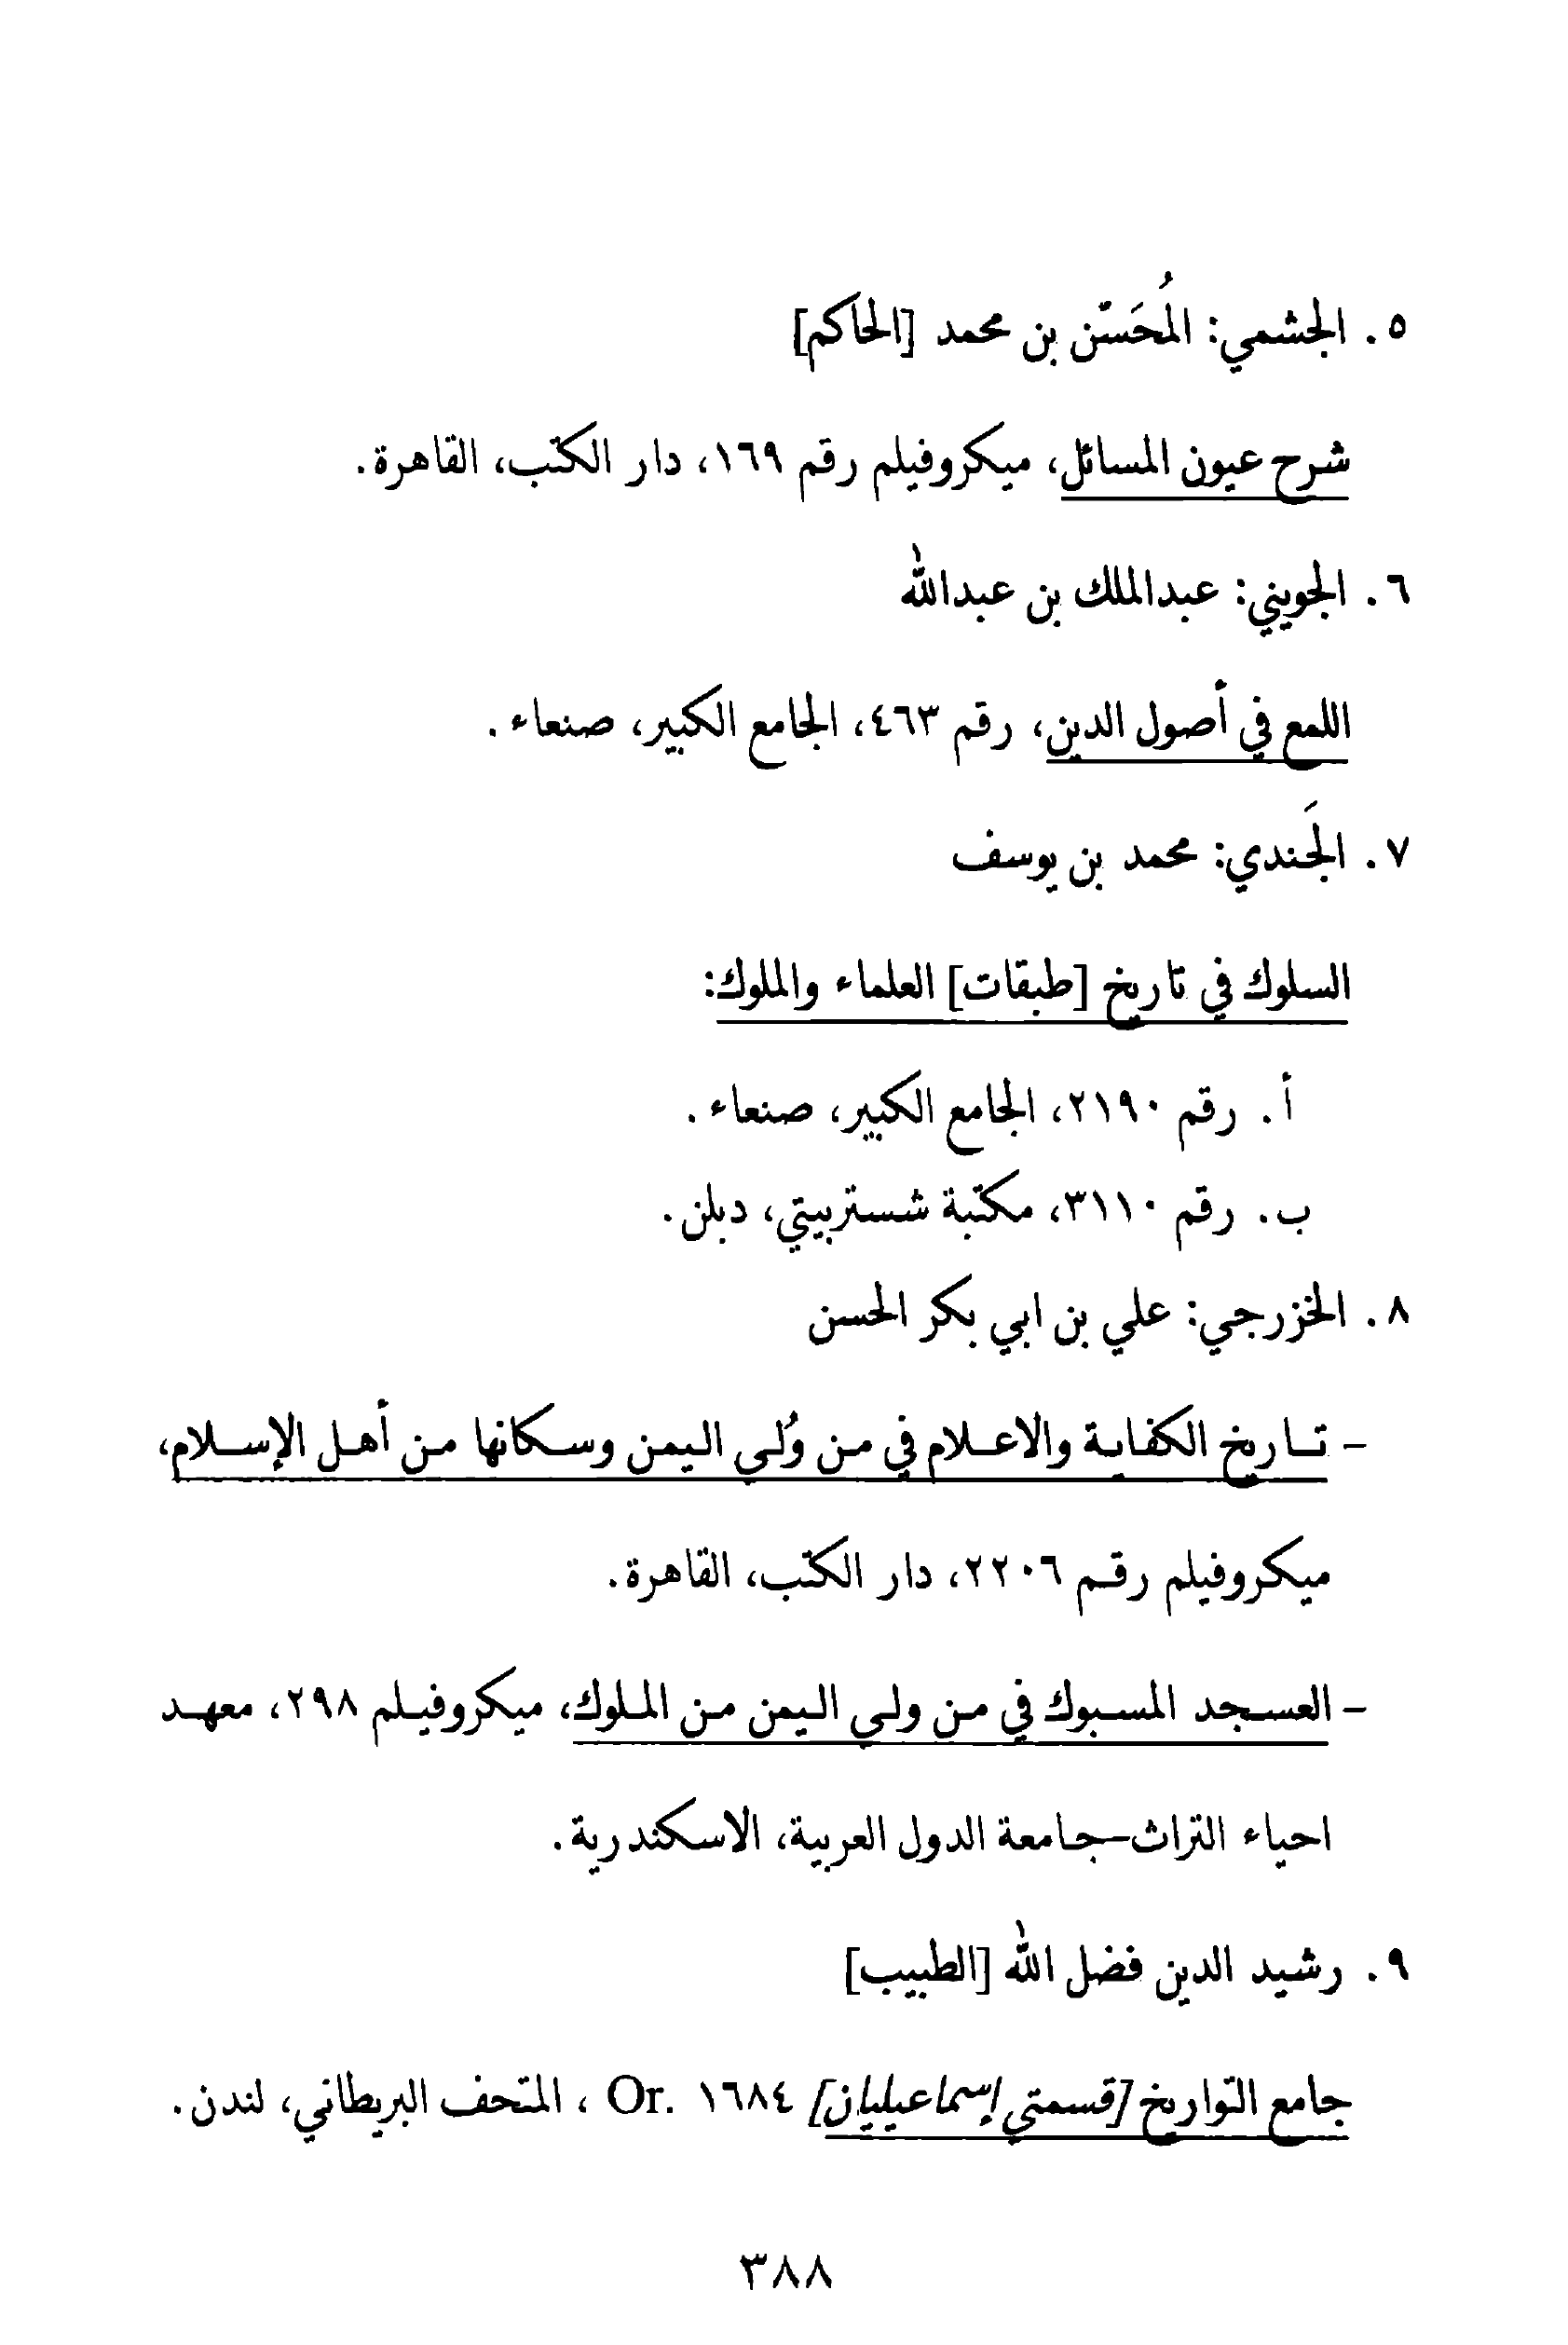 ٥. الجشمي: المُحَسّن بن محمد [الحاكم]
شرح عيون المسائل، ميكروفيلم رقم ١٦٩، دار الكتب، القاهرة.
٦. الجويني: عبدالملك بن عبدالله
اللمع في أصول الدين، رقم ٤٦٣، الجامع الكبير، صنعاء.
٧. الجَندي: محمد بن يوسف
السلوك في تاريخ [طبقات] العلماء والملوك:
أ. رقم ٢١٩٠، الجامع الكبير، صنعاء.
ب. رقم ٣١١٠، مكتبة شستربيتي، دبلن.
٨. الخزرجي: علي بن ابي بكر الحسن
- تاريخ الكفاية والاعلام في من وُلي اليمن وسكانها من أهل الإسلام،
ميكروفيلم رقم ٢٢٠٦، دار الكتب، القاهرة.
- العسجد المسبوك في من ولي اليمن من الملوك، ميكروفيلم ٢٩٨، معهد
احياء التراث-جامعة الدول العربية، الاسكندرية.
٩. رشيد الدين فضل الله [الطبيب]
جامع التواريخ [قسمتي إسماعيليان] Or. ١٦٨٤ ، المتحف البريطاني، لندن.
٣٨٨